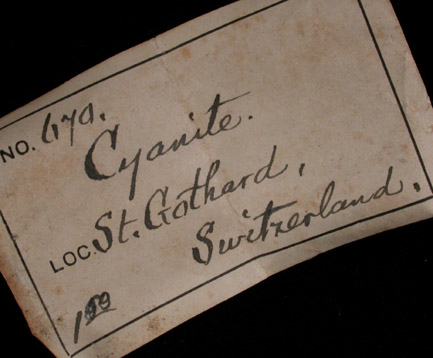 NO. 670.
Cyanite.
LOC. St. Gothard,
Switzerland.
1.00